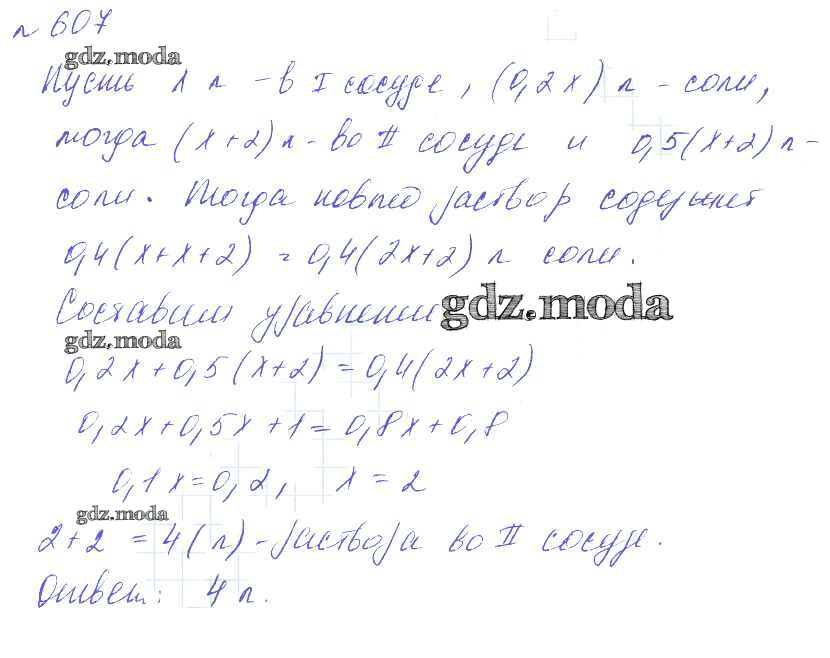 № 607
gdz.moda
Пусть x л - в I сосуде, (0,2x) л - соли,
тогда (x+2) л - во II сосуде и 0,5(x+2) л -
соли. Тогда новый раствор содержит
0,4(x+x+2) = 0,4(2x+2) л соли.
Составим уравнение
gdz.moda
gdz.moda
0,2x+0,5(x+2)=0,4(2x+2)
0,2x+0,5x+1=0,8x+0,8
0,1x=0,2, x=2
gdz.moda
2+2 = 4(л) - раствора во II сосуде.
Ответ: 4 л.